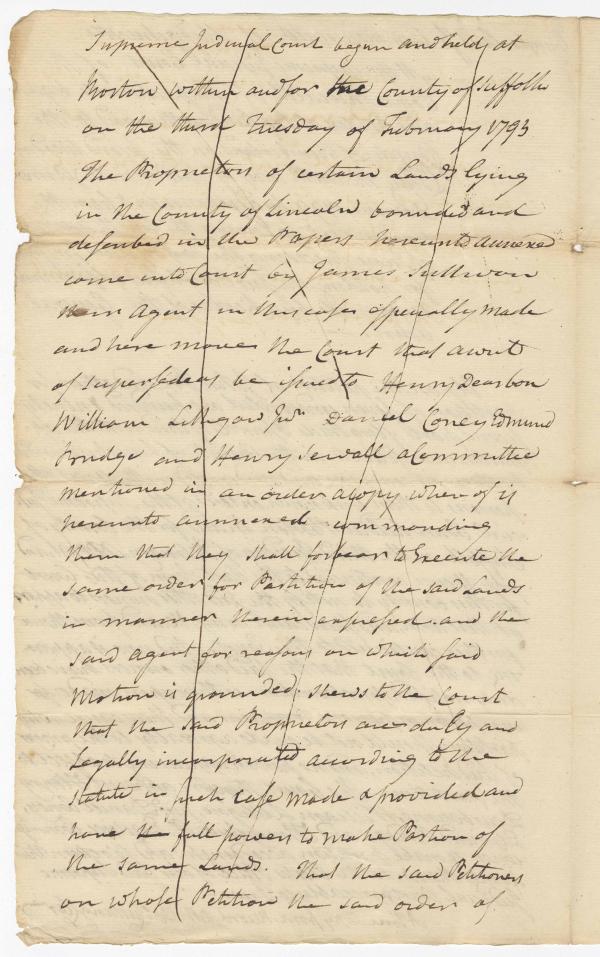 Supreme Judicial Court begun and held at
Boston within and for the County of Suffolk
on the third Tuesday of February 1793
The Proprietors of certain Lands lying
in the County of Lincoln bounded and
described in the Papers hereunto annexed
come into Court by James Sullivan
their Agent in this case especially made
and here moves the Court that a writ
of supersedeas be issued to Henry Dearbon
William Lithgow Junr Daniel Coney Edmund
Bridge and Henry Sewall a Committee
mentioned in an order a copy where of is
hereunto annexed commanding
them that they shall forbear to Execute the
same order for Partition of the said Lands
in manner therein expressed. and the
said agent for reasons on which said
Motion is grounded shews to the Court
that the said Proprietors are duly and
Legally incorporated according to the
Statute in such case made & provided and
have the full powers to make Partion of
the same Lands. That the said Petitioners
on whose Petition the said order of